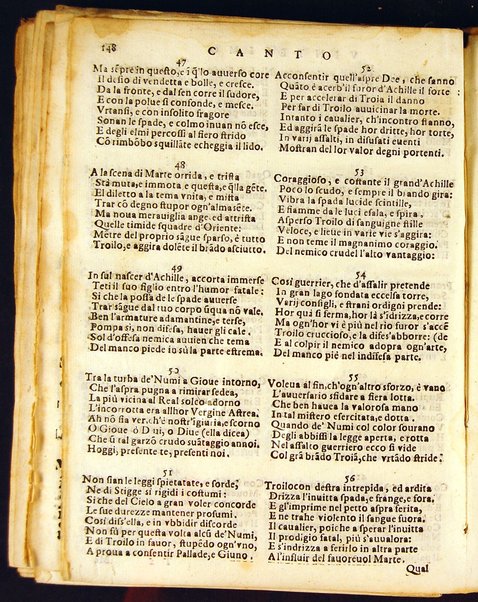 148
CANTO
47
Ma sẽpre in questo, e ĩ q̃'lo auuerso core
Il desio di vendetta e bolle, e cresce.
Da la fronte, e dal sen corre il sudore,
E con la polue si confonde, e mesce.
Vrtansi, e con insolito fragore
Sonan le spade, e colmo inuan nõ esce,
E degli elmi percossi al fiero strido
Cõ rimbõbo squillãte echeggia il lido.
48
A la scena di Marte orrida, e trista
Stà muta, e immota e questa, e q̃lla gẽte.
Il diletto a la tema vnita, e mista
Trar cõ degno stupor ogn'alma sẽte.
Ma noua merauiglia ange, ed attrista
Quelle timide squadre d'Oriente:
Mẽtre del proprio sãgue sparso, è tutto
Troilo, e aggira dolẽte il brãdo asciutto.
49
In sul nascer d'Achille, accorta immerse
Teti il suo figlio entro l'humor fatale:
Si che la possa de le spade auuerse
Trar sãgue dal tuo corpo vnqua nõ vale.
Ben l'armature adamantine, e terse,
Pompa si, non difesa, hauer gli cale.
Sol d'offesa nemica auuien che tema
Del manco piede in sù la parte estrema.
50
Tra la turba de'Numi a Gioue intorno,
Che l'aspra pugna a rimirar sedea,
La più vicina al Real solco adorno
L'incorrotta era allhor Vergine Astrea.
Ah nõ fia ver, ch'è nostr'igiuria, e scorno
O Gioue ò Diui, o Diue (ella dicea)
Che ũ tal garzõ crudo suãtaggio annoi.
Hoggi, presente te, presenti noi.
51
Non sian le leggi spietatate, e sorde,
Ne di Stigge si rigidi i costumi:
Si che del Cielo a gran voler concorde
Le sue durezze mantener presumi.
Così diss'ella, e in vbbidir discorde
Non fù per questa volta alcũ de'Numi,
E di Troilo in fauor, stupẽdo ogn'vno,
A proua a consentir Pallade, e Giuno.
52
Acconsentir quell'aspre Dee, che sanno
Quãto è acerb'il furor d'Achille il forte:
E per accelerar di Troia il danno
Per far di Troilo auuicinar la morte.
Intanto i caualier, ch'incontro fianno,
Ed aggirã le spade hor dritte, hor torte,
In varij assalti, in disusati euenti
Mostran del lor valor degni portenti.
53
Coraggioso, e costante il grand'Achille
Poco lo scudo, e sempre il brando gira:
Vibra la spada lucide scintille,
E fiamme da le luci esala, e spira.
Asperso Troilo di sanguigne stille
Veloce, e lieue in varie vie s'aggira:
E non teme il magnanimo coraggio
Del nemico crudel l'alto vantaggio:
54
Così guerrier, che d'assalir pretende
In gran lago fondata eccelsa torre,
Varij consigli, e strani ordigni prende:
Hor quì si ferma, hor là s'idrizza, e corre
Ma ogn'hor vi è più nel rio furor s'accẽ
Troilo cruccioso, e la difes'abborre: (de
E al colpir il nemico adopra ogn'arte,
Del manco piè nel indifesa parte.
55
Voleua al fin, ch'ogn'altro sforzo, è vano
L'auuersario sfidare a fiera lotta.
Che ben haueua la valorosa mano
In tal mistero esercitata, e dotta.
Quando de' Numi col color sourano
Degli abbissi la legge aperta, e rotta
Nel assalto guerriero ecco si vide
Col grã brãdo Troiã, che vrtãdo stride.
56
Troilo con destra intrepida, ed ardita
Drizza l'inuitta spada, e frange, e fora.
E gl'imprime nel petto aspra ferita,
E ne trahe violento il sangue fuora.
Il caualier, poiche a sperar l'inuita
Il prodigio fatal, più s'auualora:
E s'indrizza a ferirlo in altra parte
A l'influir del fauoreuol Marte.
Qual